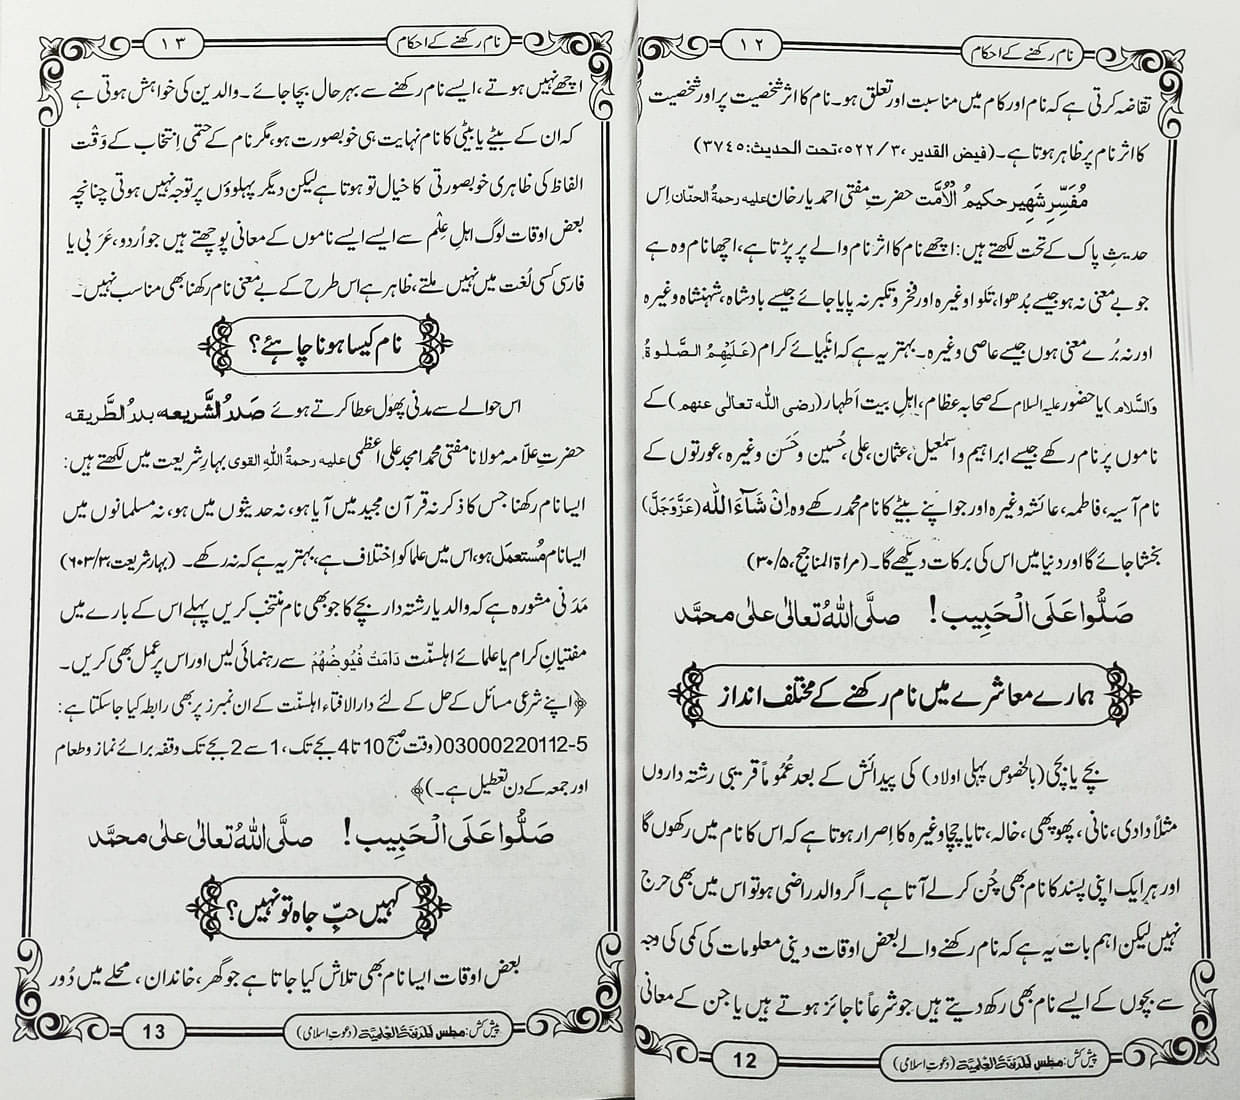 نام رکھنے کے احکام
١٢
تقاضہ کرتی ہے کہ نام اور کام میں مناسبت اور تعلق ہو۔ نام کا اثر شخصیت پر اور شخصیت
کا اثر نام پر ظاہر ہوتا ہے۔ (فیض القدیر ،٣/ ٥٢٢، تحت الحدیث: ٣٧٤٥)
مُفَسِّرِ شَهِیر حکیمُ الْاُمَّت حضرتِ مفتی احمد یار خان علیه رحمةُ الحنّان اِس
حدیثِ پاک کے تحت لکھتے ہیں: اچھے نام کا اثر نام والے پر پڑتا ہے، اچھا نام وہ ہے
جو بے معنی نہ ہو جیسے بُدھوا، تلوا وغیرہ اور فخر و تکبر نہ پایا جائے جیسے بادشاہ، شہنشاہ وغیرہ
اور نہ بُرے معنی ہوں جیسے عاصی وغیرہ۔ بہتر یہ ہے کہ انبیائے کرام (عَلَیْهِمُ الصَّلٰوةُ
وَالسَّلَام) یا حضور علیہ السلام کے صحابہ عظام، اہلِ بیت اَطہار (رضی اللّٰه تعالٰی عنهم) کے
ناموں پر نام رکھے جیسے ابراہیم و اسمٰعیل، عثمان، علی، حُسین و حَسن وغیرہ، عورتوں کے
نام آسیہ، فاطمہ، عائشہ وغیرہ اور جو اپنے بیٹے کا نام محمد رکھے وہ اِنْ شَآءَ اللّٰه (عَزَّوَجَلَّ)
بخشا جائے گا اور دنیا میں اس کی برکات دیکھے گا۔ (مراٰۃ المناجیح، ٥/ ٣٠)
صَلُّوا عَلَی الْحَبِیب! صلَّی اللّٰهُ تعالٰی علٰی محمَّد
ہمارے معاشرے میں نام رکھنے کے مختلف انداز
بچے یا بچی (بالخصوص پہلی اولاد) کی پیدائش کے بعد عُمُوماً قریبی رشتہ داروں
مثلاً دادی، نانی، پھوپھی، خالہ، تایا چچا وغیرہ کا اِصرار ہوتا ہے کہ اس کا نام میں رکھوں گا
اور ہر ایک اپنی پسند کا نام بھی چُن کر لے آتا ہے۔ اگر والد راضی ہو تو اس میں بھی حرج
نہیں لیکن اہم بات یہ ہے کہ نام رکھنے والے بعض اوقات دینی معلومات کی کمی کی وجہ
سے بچوں کے ایسے نام بھی رکھ دیتے ہیں جو شرعاً ناجائز ہوتے ہیں یا جن کے معانی
پیش کش: مجلس المدینۃ العلمیۃ (دعوتِ اسلامی)
12
نام رکھنے کے احکام
١٣
اچھے نہیں ہوتے، ایسے نام رکھنے سے بہر حال بچا جائے۔ والدین کی خواہش ہوتی ہے
کہ ان کے بیٹے یا بیٹی کا نام نہایت ہی خوبصورت ہو، مگر نام کے حتمی اِنتخاب کے وَقْت
الفاظ کی ظاہری خوبصورتی کا خیال تو ہوتا ہے لیکن دیگر پہلوؤں پر توجہ نہیں ہوتی چنانچہ
بعض اوقات لوگ اہلِ عِلْم سے ایسے ایسے ناموں کے معانی پوچھتے ہیں جو اُردو، عَرَبی یا
فارسی کسی لُغت میں نہیں ملتے، ظاہر ہے اس طرح کے بے معنی نام رکھنا بھی مناسب نہیں۔
نام کیسا ہونا چاہئے؟
اس حوالے سے مدنی پھول عطا کرتے ہوئے صَدرُ الشَّریعه، بدرُ الطَّریقه
حضرتِ علّامہ مولانا مفتی محمد امجد علی اعظمی علیه رحمةُ اللّٰهِ القوی بہارِ شریعت میں لکھتے ہیں:
ایسا نام رکھنا جس کا ذکر نہ قرآن مجید میں آیا ہو، نہ حدیثوں میں ہو، نہ مسلمانوں میں
ایسا نام مُستعمَل ہو، اس میں علما کو اختلاف ہے، بہتر یہ ہے کہ نہ رکھے۔ (بہار شریعت، ٣/ ٦٠٣)
مَدَنی مشورہ ہے کہ والد یا رشتہ دار بچے کا جو بھی نام منتخب کریں پہلے اس کے بارے میں
مفتیانِ کرام یا علمائے اہلسنّت دَامَتْ فُیُوضُهُمْ سے رہنمائی لیں اور اس پر عمل بھی کریں۔
﴿اپنے شرعی مسائل کے حل کے لئے دارالافتاء اہلسنّت کے ان نمبرز پر بھی رابطہ کیا جاسکتا ہے:
03000220112-5 (وقت صبح 10 تا 4 بجے تک، 1 سے 2 بجے تک وقفہ برائے نماز و طعام
اور جمعہ کے دن تعطیل ہے۔)﴾
صَلُّوا عَلَی الْحَبِیب! صلَّی اللّٰهُ تعالٰی علٰی محمَّد
کہیں حبِّ جاہ تو نہیں؟
بعض اوقات ایسا نام بھی تلاش کیا جاتا ہے جو گھر، خاندان، محلے میں دُور
پیش کش: مجلس المدینۃ العلمیۃ (دعوتِ اسلامی)
13